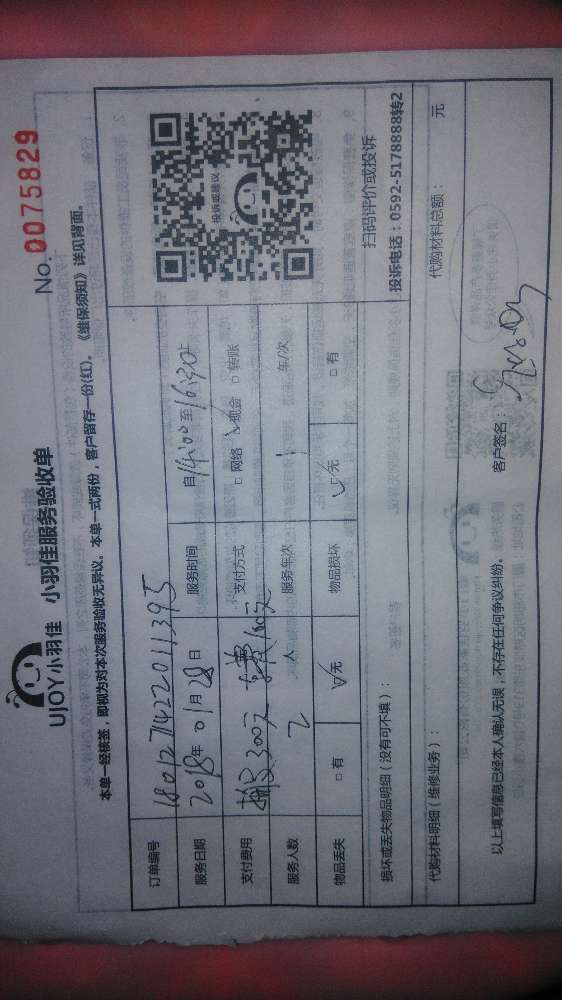 UJOY小羽佳 小羽佳服务验收单
No. 0075829
本单一经核签，即视为对本次服务验收无异议。本单一式两份，客户留存一份(红)。《维保须知》详见背面。
订单编号 180127142201​1395
服务日期 2018年01月28日 服务时间 自14:00至16:30止
支付费用 搬运300元 车费100元 支付方式 □网络 ☑现金 □转账
服务人数 2人 服务车次 1 车/次
物品丢失 □有 ☑无 物品损坏 ☑无 □有
投诉或建议
扫码评价或投诉
投诉电话：0592-5178888转2
损坏或丢失物品明细（没有可不填）：
代购材料明细（维修业务）： 代购材料总额： 元
以上填写信息已经本人确认无误，不存在任何争议纠纷。 客户签名：